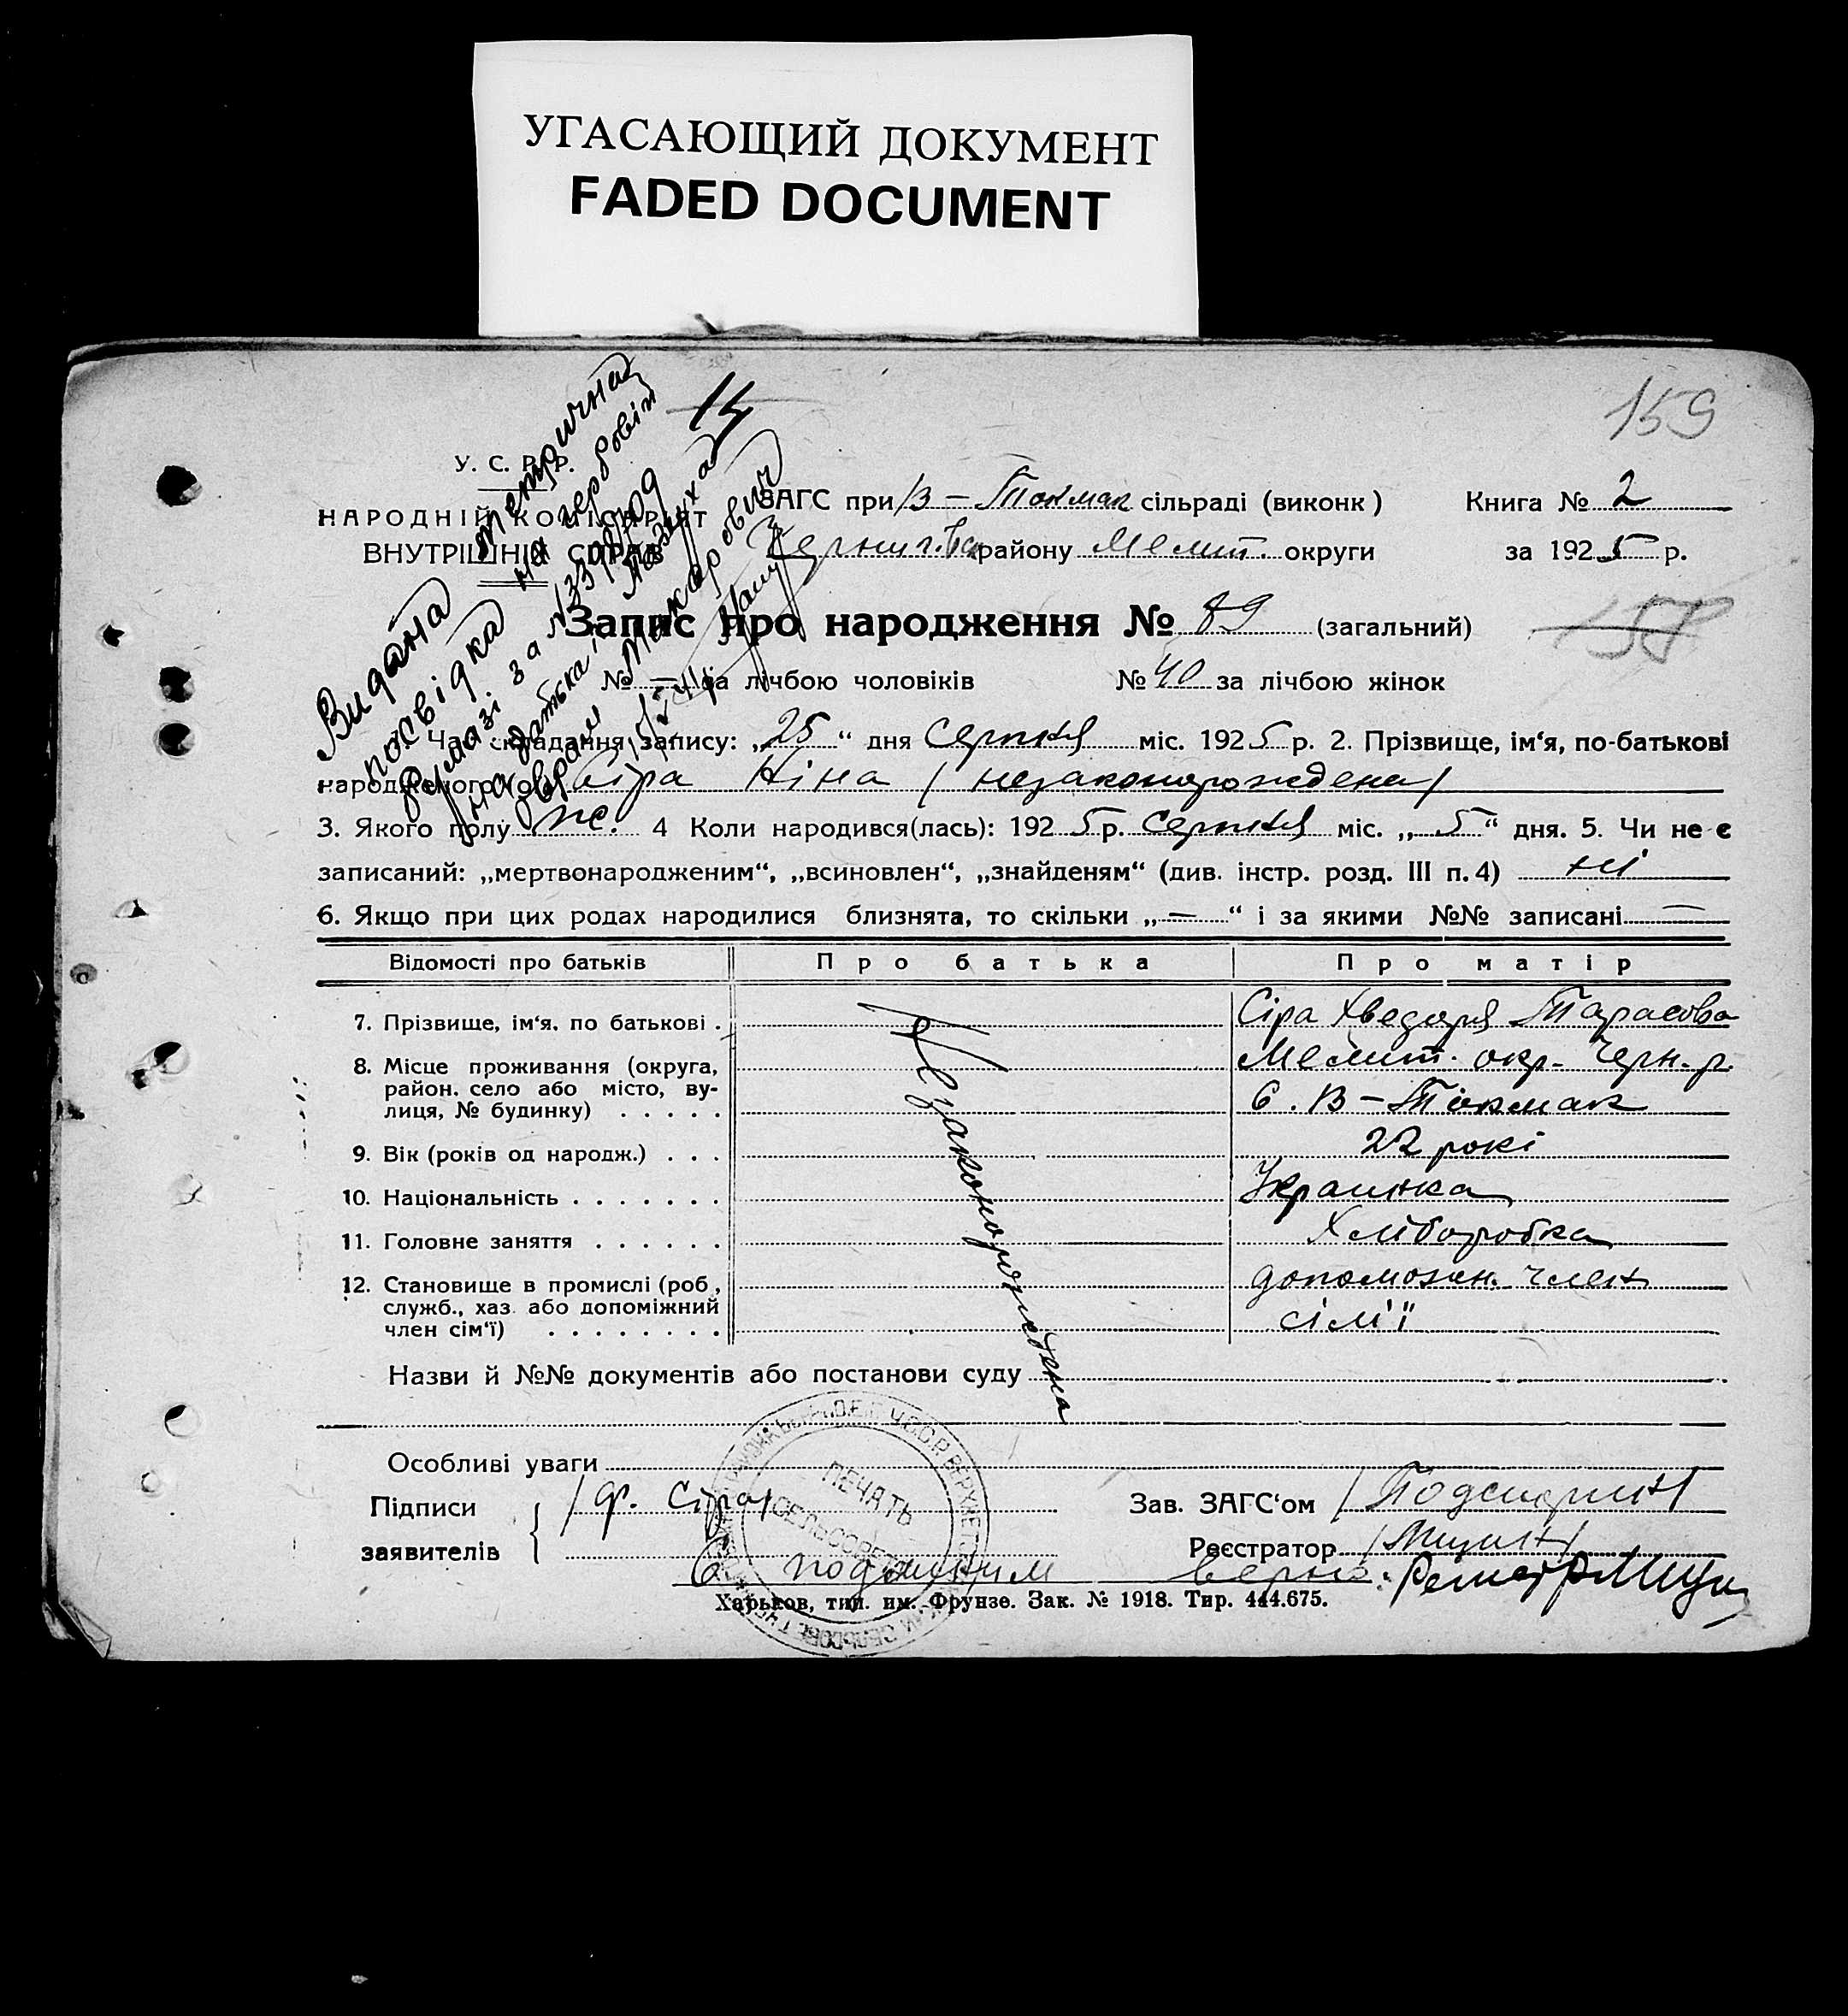 УГАСАЮЩИЙ ДОКУМЕНТ
FADED DOCUMENT
159
14
Видана метрична
посвідка на гербовім
бумазі за № 339709
на батька: Мазуха
Аврам Макарович
У. С. Р. Р.
НАРОДНІЙ КОМІСАРІЯТ
ВНУТРІШНІХ СПРАВ
ЗАГС при В-Токмак сільраді (виконк)
Книга № 2
Черниг. району Меліт. округи
за 1925 р.
Запис про народження № 89 (загальний)
158
№ — за лічбою чоловіків
№ 40 за лічбою жінок
1. Час складання запису: „25“ дня Серпня міс. 1925 р. 2. Прізвище, ім'я, по-батькові
народженого(ої) Сіра Ніна (незаконорождена)
3. Якого полу ж. 4 Коли народився(лась): 1925 р. Серпня міс. „5“ дня. 5. Чи не є
записаний: „мертвонародженим“, „всиновлен“, „знайденям“ (див. інстр. розд. III п. 4) ні
6. Якщо при цих родах народилися близнята, то скільки „—“ і за якими №№ записані —
Відомості про батьків
Про батька
Про матір
7. Прізвище, ім'я, по батькові .
Сіра Хведора Тарасова
8. Місце проживання (округа,
район, село або місто, ву-
лиця, № будинку) . . . . .
Меліт. окр. Черн. р.
С. В-Токмак
9. Вік (років од народж.) . . .
22 рокі
10. Національність . . . . . . .
Украинка
11. Головне заняття . . . . . .
Хліборобка
12. Становище в промислі (роб.,
служб., хаз. або допоміжний
член сім'ї) . . . . . . . .
допоможн. член
сім'ї
Незаконорождена
Назви й №№ документів або постанови суду
Особливі уваги
Підписи
заявителів
/ Ф. Сіра/
Зав. ЗАГС'ом
Реєстратор
ПЕЧАТЬ
СЕЛЬСОВЕТА
С подлиним верно:
Харьков, тип. им. Фрунзе. Зак. № 1918. Тир. 444.675.